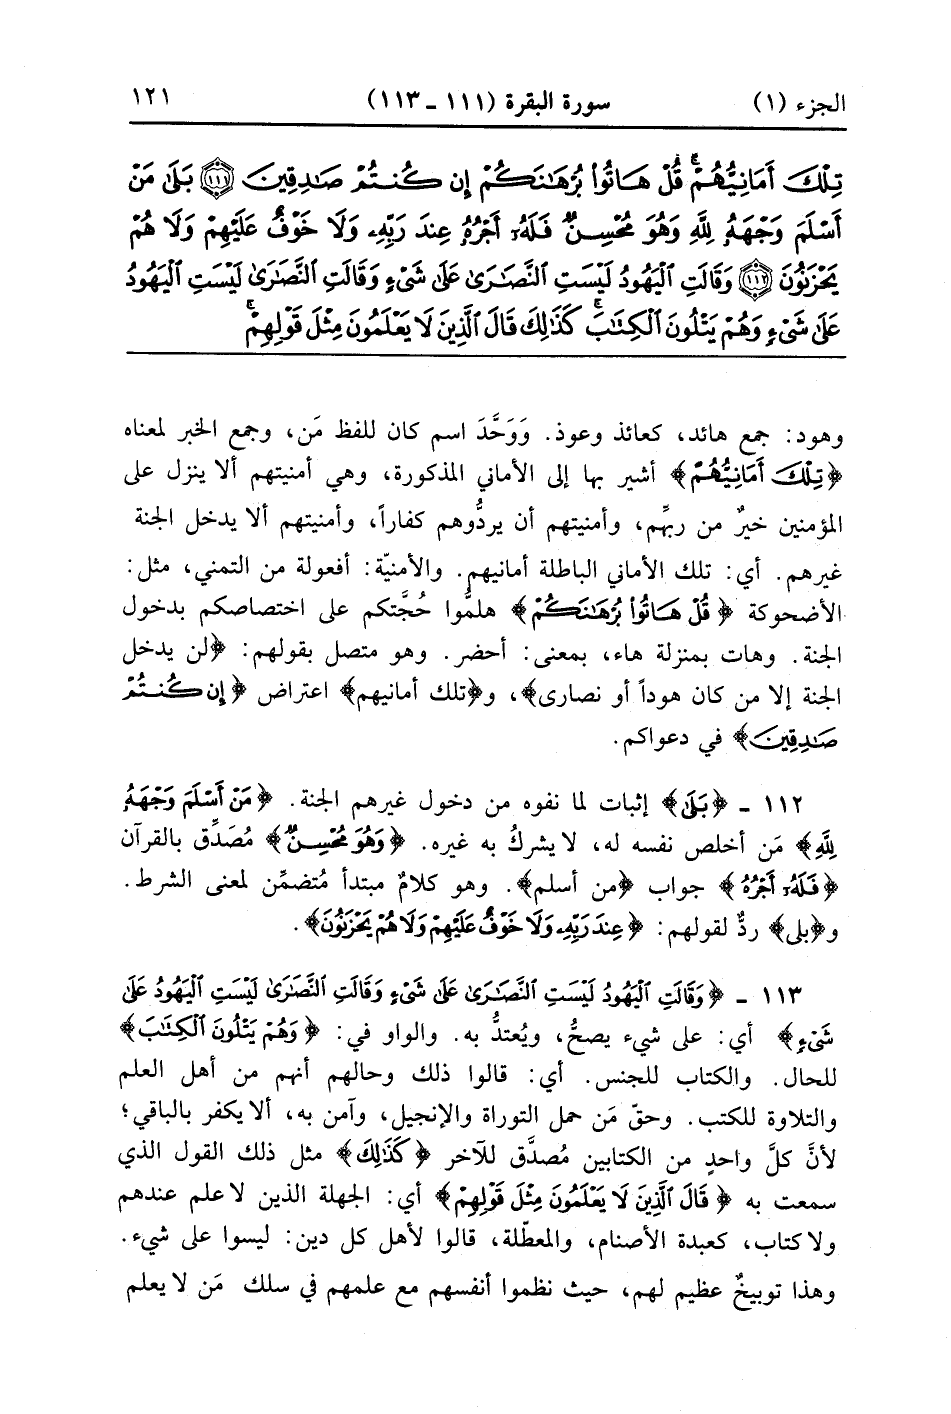 الجزء (١) سورة البقرة (١١١ - ١١٣) ١٢١
تِلْكَ أَمَانِيُّهُمْ ۗ قُلْ هَاتُوا۟ بُرْهَـٰنَكُمْ إِن كُنتُمْ صَـٰدِقِينَ ﴿١١١﴾ بَلَىٰ مَنْ
أَسْلَمَ وَجْهَهُۥ لِلَّهِ وَهُوَ مُحْسِنٌ فَلَهُۥٓ أَجْرُهُۥ عِندَ رَبِّهِۦ وَلَا خَوْفٌ عَلَيْهِمْ وَلَا هُمْ
يَحْزَنُونَ ﴿١١٢﴾ وَقَالَتِ ٱلْيَهُودُ لَيْسَتِ ٱلنَّصَـٰرَىٰ عَلَىٰ شَىْءٍ وَقَالَتِ ٱلنَّصَـٰرَىٰ لَيْسَتِ ٱلْيَهُودُ
عَلَىٰ شَىْءٍ وَهُمْ يَتْلُونَ ٱلْكِتَـٰبَ ۗ كَذَٰلِكَ قَالَ ٱلَّذِينَ لَا يَعْلَمُونَ مِثْلَ قَوْلِهِمْ ۚ
وهود: جمع هائد، كعائذ وعوذ. وَوَحَّدَ اسم كان للفظ مَن، وجمع الخبر لمعناه
﴿تِلْكَ أَمَانِيُّهُمْ﴾ أشير بها إلى الأماني المذكورة، وهي أمنيتهم ألا ينزل على
المؤمنين خيرٌ من ربهِّم، وأمنيتهم أن يردُّوهم كفاراً، وأمنيتهم ألا يدخل الجنة
غيرهم. أي: تلك الأماني الباطلة أمانيهم. والأمنيّة: أفعولة من التمني، مثل:
الأضحوكة ﴿قُلْ هَاتُوا۟ بُرْهَـٰنَكُمْ﴾ هلمُّوا حُجَّتكم على اختصاصكم بدخول
الجنة. وهات بمنزلة هاء، بمعنى: أحضر. وهو متصل بقولهم: ﴿لن يدخل
الجنة إلا من كان هوداً أو نصارى﴾، و﴿تلك أمانيهم﴾ اعتراض ﴿إِن كُنتُمْ
صَـٰدِقِينَ﴾ في دعواكم.
١١٢ - ﴿بَلَىٰ﴾ إثبات لما نفوه من دخول غيرهم الجنة. ﴿مَنْ أَسْلَمَ وَجْهَهُۥ
لِلَّهِ﴾ مَن أخلص نفسه له، لا يشركُ به غيره. ﴿وَهُوَ مُحْسِنٌ﴾ مُصَدِّق بالقرآن
﴿فَلَهُۥٓ أَجْرُهُۥ﴾ جواب ﴿من أسلم﴾. وهو كلامٌ مبتدأ مُتضمِّن لمعنى الشرط.
و﴿بلى﴾ ردٌّ لقولهم: ﴿عِندَ رَبِّهِۦ وَلَا خَوْفٌ عَلَيْهِمْ وَلَا هُمْ يَحْزَنُونَ﴾.
١١٣ - ﴿وَقَالَتِ ٱلْيَهُودُ لَيْسَتِ ٱلنَّصَـٰرَىٰ عَلَىٰ شَىْءٍ وَقَالَتِ ٱلنَّصَـٰرَىٰ لَيْسَتِ ٱلْيَهُودُ عَلَىٰ
شَىْءٍ﴾ أي: على شيء يصحُّ، ويُعتدُّ به. والواو في: ﴿وَهُمْ يَتْلُونَ ٱلْكِتَـٰبَ﴾
للحال. والكتاب للجنس. أي: قالوا ذلك وحالهم أنهم من أهل العلم
والتلاوة للكتب. وحقّ مَن حمل التوراة والإنجيل، وآمن به، ألا يكفر بالباقي؛
لأنَّ كلَّ واحدٍ من الكتابين مُصدَّق للآخر ﴿كَذَٰلِكَ﴾ مثل ذلك القول الذي
سمعت به ﴿قَالَ ٱلَّذِينَ لَا يَعْلَمُونَ مِثْلَ قَوْلِهِمْ﴾ أي: الجهلة الذين لا علم عندهم
ولا كتاب، كعبدة الأصنام، والمعطّلة، قالوا لأهل كل دين: ليسوا على شيء.
وهذا توبيخٌ عظيم لهم، حيث نظموا أنفسهم مع علمهم في سلك مَن لا يعلم